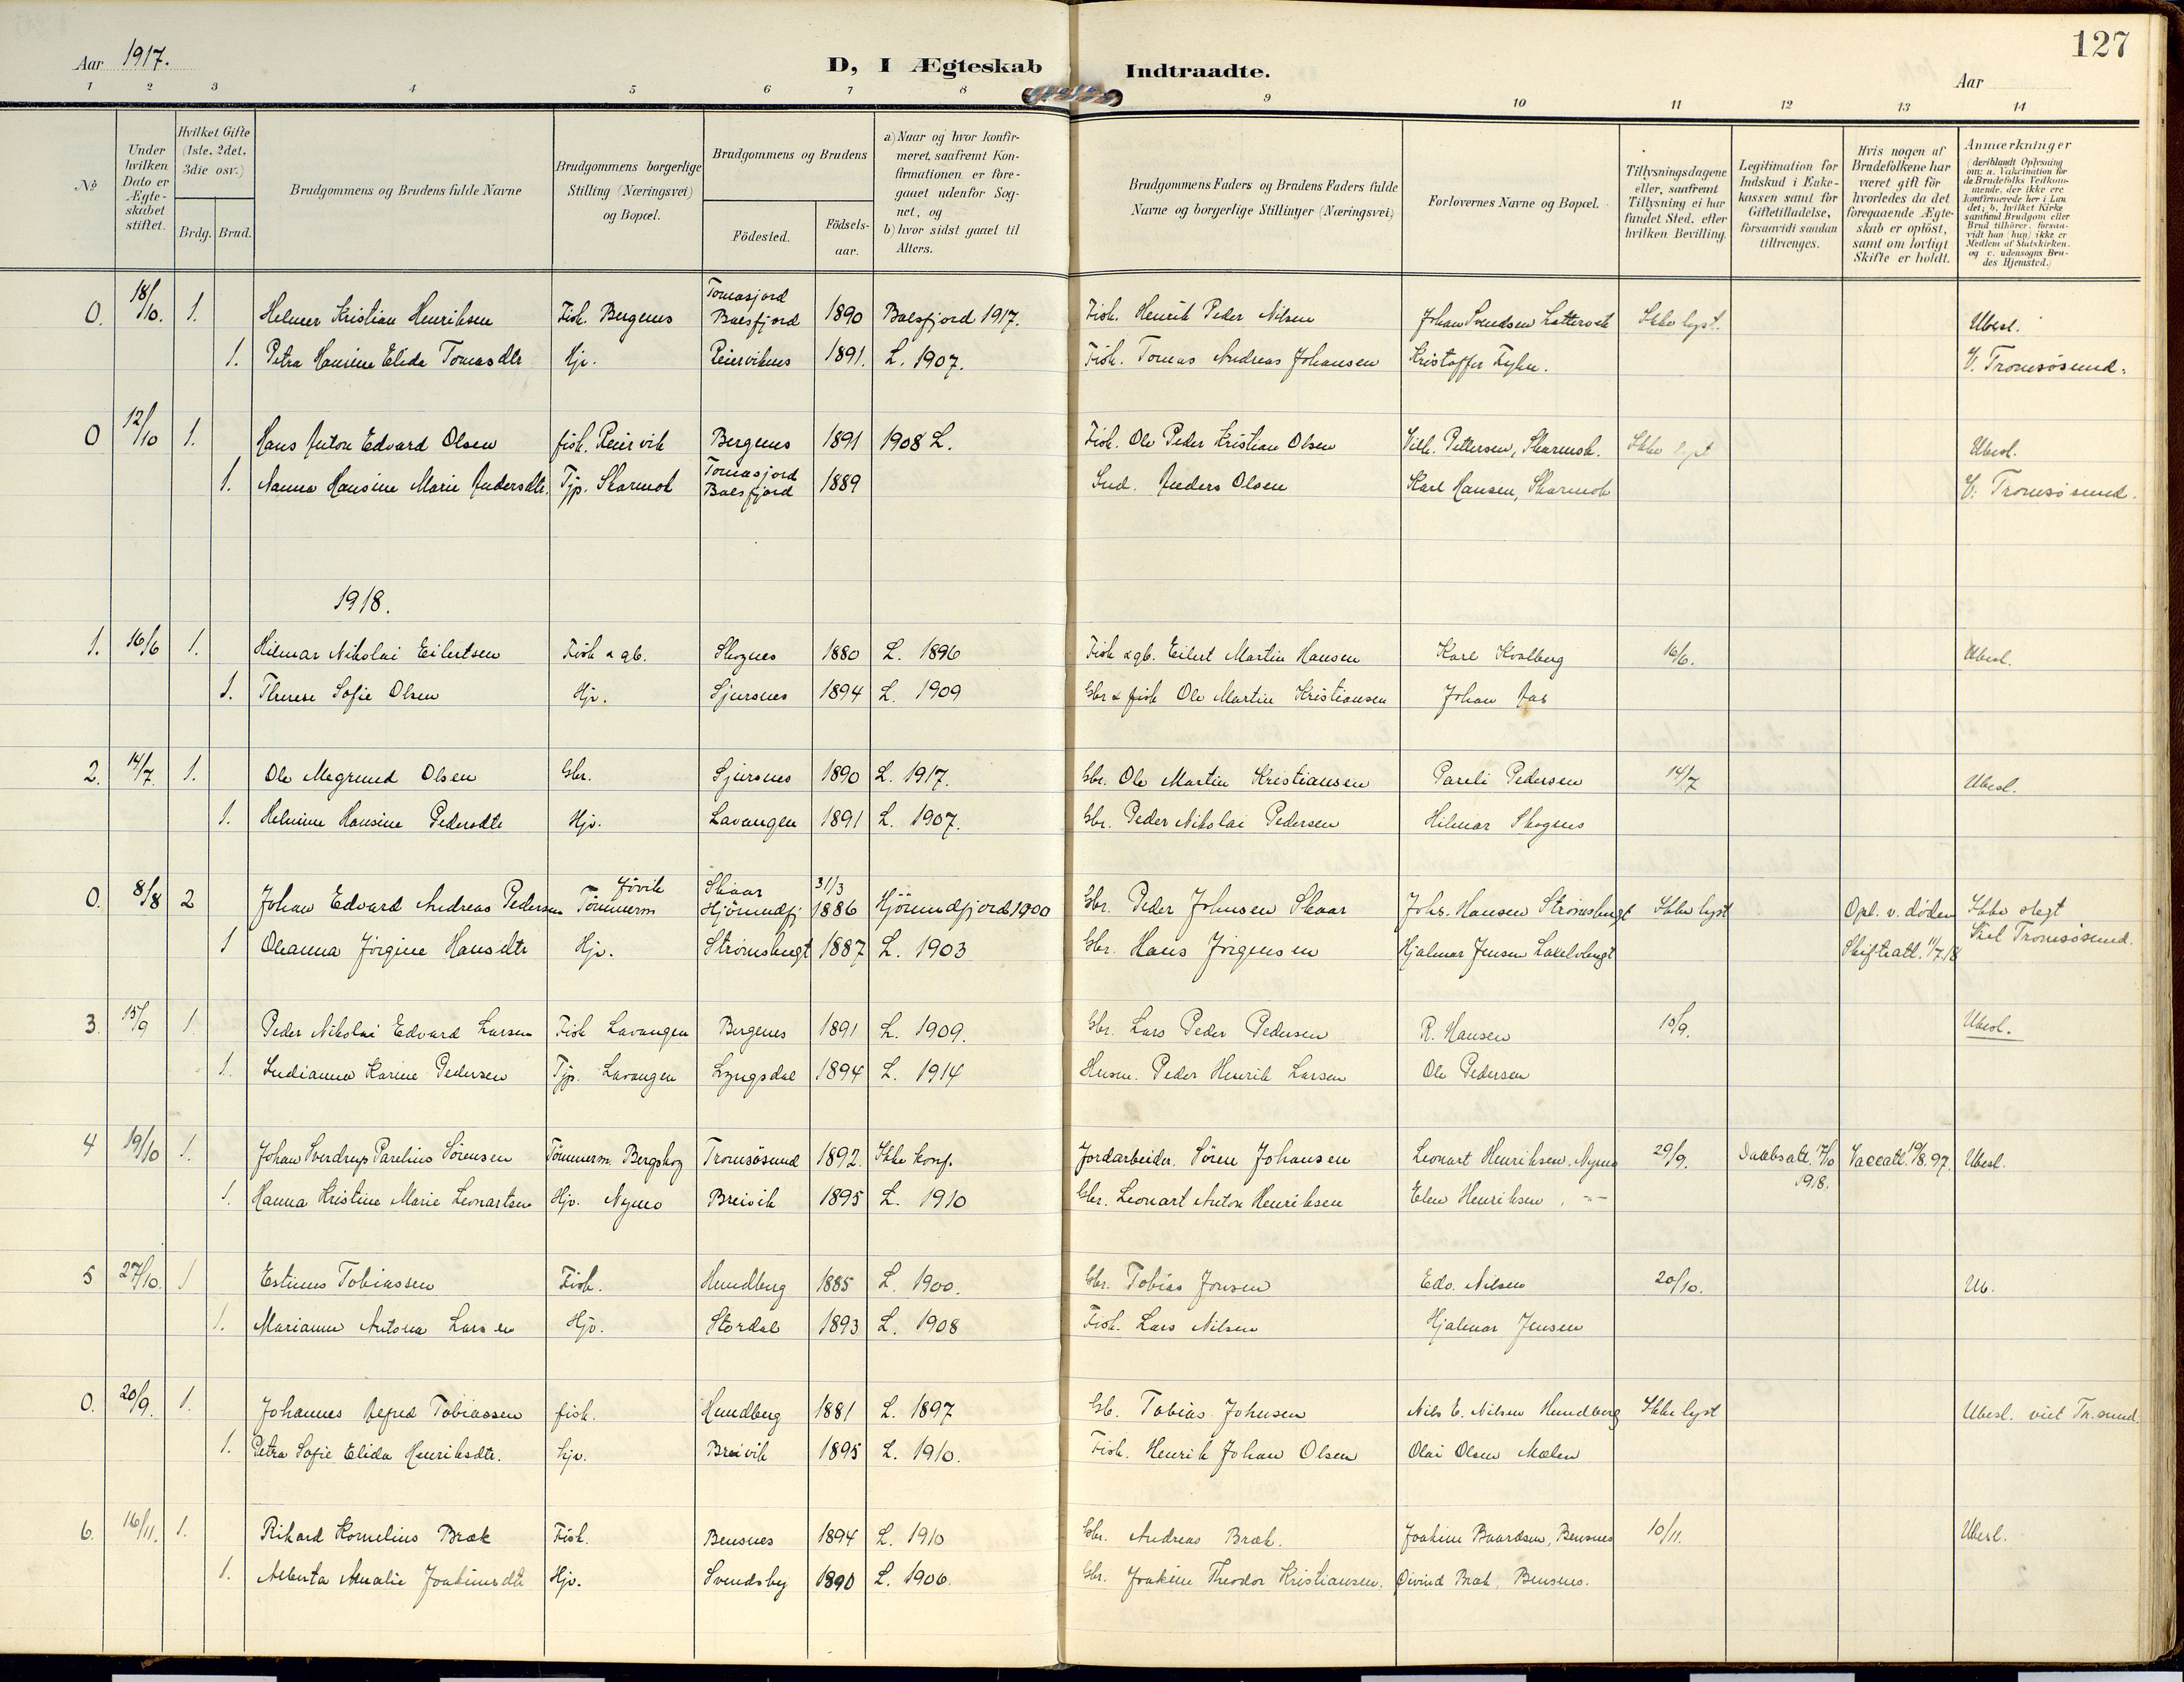 127
Aar 1917.
D, I Ægteskab Indtraadte.
Aar
1 2 3 4 5 6 7 8 9 10 11 12 13 14
No
Under hvilken Dato er Ægteskabet stiftet.
Hvilket Gifte (1ste, 2det, 3die osv.)
Brdg. Brud.
Brudgommens og Brudens fulde Navne
Brudgommens borgerlige Stilling (Næringsvei) og Bopæl.
Brudgommens og Brudens
Födested. Födselsaar.
a) Naar og hvor konfirmeret, saafremt Konfirmationen er foregaaet udenfor Sognet, og
b) hvor sidst gaaet til Alters.
Brudgommens Faders og Brudens Faders fulde Navne og borgerlige Stillinger (Næringsvei)
Forlovernes Navne og Bopæl.
Tillysningsdagene eller, saafremt Tillysning ei har fundet Sted, efter hvilken Bevilling.
Legitimation for Indskud i Enkekassen samt for Giftetilladelse, forsaavidt saadan tiltrænges.
Hvis nogen af Brudefolkene har været gift för hvorledes da det foregaaende Ægteskab er oplöst, samt om lovligt Skifte er holdt.
Anmærkninger
(deriblandt Oplysning om: a. Vakcination for de Brudefolks Vedkommende, der ikke ere konfirmerede her i Landet; b. hvilket Kirkesamfund Brudgom eller Brud tilhörer, forsaavidt han (hun) ikke er Medlem af Statskirken. og c. udensogns Brudes Hjemsted.)
0. 18/10. 1. Helmer Kristian Henriksen Fisk. Bergenes Tomasjord Balsfjord 1890 Balsfjord 1917. Fisk. Henrik Peder Nilsen Johan Svendsen Ikke lyst. Ubesl.
1. Petra Hansine Elida Tomasdtr Hjv. Reiervikens 1891. L. 1907. Fisk. Tomas Andreas Johansen Kristoffer V. Tromsösund.
0 12/10 1. Hans Anton Edvard Olsen fisk. Reiervik Bergenes 1891 1908 L. Fisk. Ole Peder Kristian Olsen Vilh. Pettersen, Skarmok. Ikke lyst Ubesl.
1. Nanna Hansine Marie Andersdtr. Tjp. Skarmok Tomasjord Balsfjord 1889 Ind. Anders Olsen Karl Hansen, Skarmok V. Tromsösund.
1918.
1. 16/6 1. Hilmar Nikolai Eilertsen Fisk & gb. Skognes 1880 L. 1896 Fisk & gb. Eilert Martin Hansen Karl Kvalberg 16/6. Ubesl.
1. Therese Sofie Olsen Hjv. Sjursnes 1894 L. 1909 Gbr & fisk Ole Martin Kristiansen Johan Aas
2. 14/7. 1. Ole Magnund Olsen Gbr. Sjursnes 1890 L. 1917. Gbr. Ole Martin Kristiansen Pareli Pedersen 14/7 Ubesl.
1. Helmine Hansine Pedersdtr Hjv. Lavangen 1891 L. 1907. Gbr. Peder Nikolai Pedersen Hilmar Skognes
0. 8/8 2 Johan Edvard Andreas Pedersen Jövik Tömmerm Skaar Hjörundfj 31/3 1886 Hjörundfjord 1900 Gbr. Peder Johnsen Skaar Johs. Hansen Strömsbugt Ikke lyst Opl. v. döden Ikke slegt
1 Oleanna Jörgine Hansdtr Hjv. Strömsbugt 1887 L. 1903 Gbr. Hans Jörgensen Hjalmar Jensen Lakselvbugt Skifteatt. 11/7 18 Tromsösund.
3. 15/9 1. Peder Nikolai Edvard Larsen Fisk Lavangen Bergenes 1891 L. 1909. Gbr. Lars Peder Pedersen R. Hansen 15/9. Ubesl.
1. Indianna Karine Pedersen Tjp. Lavangen Lyngsdal 1894 L. 1914 Husm. Peder Henrik Larsen Ole Pedersen
4 19/10 1. Johan Sverdrup Parelius Sörensen Tömmerm. Bergskog Tromsösund 1892. Ikke konf. Jordarbeider. Sören Johansen Leonart Henriksen, Nymo 29/9. Daabsatt. 17/10 1918. Vaccatt. 19/8. 97. Ubesl.
1. Hanna Kristine Marie Leonartsen Hjv. Nymo Breivik 1895 L. 1910 Gbr. Leonart Anton Henriksen Elen Henriksen. -"-
5 27/10. 1 Estinus Tobiassen Fisk. Hundberg 1885 L. 1900. Gbr. Tobias Jonsen Edv. Nilsen 20/10. Ub.
1. Marianne Antona Larsen Hjv. Stordal 1893 L. 1908 Fisk. Lars Nilsen Hjalmar Jensen
0. 20/9. 1. Johannes Alfred Tobiassen fisk. Hundberg 1881 L. 1897 Gb. Tobias Johnsen Nils E. Nilsen Hundberg Ikke lyst Ubesl. viet Tr.sund.
1. Petra Sofie Elida Henriksdtr. hjv. Breivik 1895 L. 1910. Fisk. Henrik Johan Olsen Olai Olsen Mælen
6. 16/11. 1. Rikard Kornelius Bræk Fisk. Bensnes 1894 L. 1910 Gbr. Andreas Bræk. Joakim Baardsen, Bensnes 10/11. Ubesl.
1. Alberta Amalie Joakimsdtr Hjv. Svendsby 1890 L. 1906. Gbr. Joakim Theodor Kristiansen. Öivind Bræk, Bensnes.